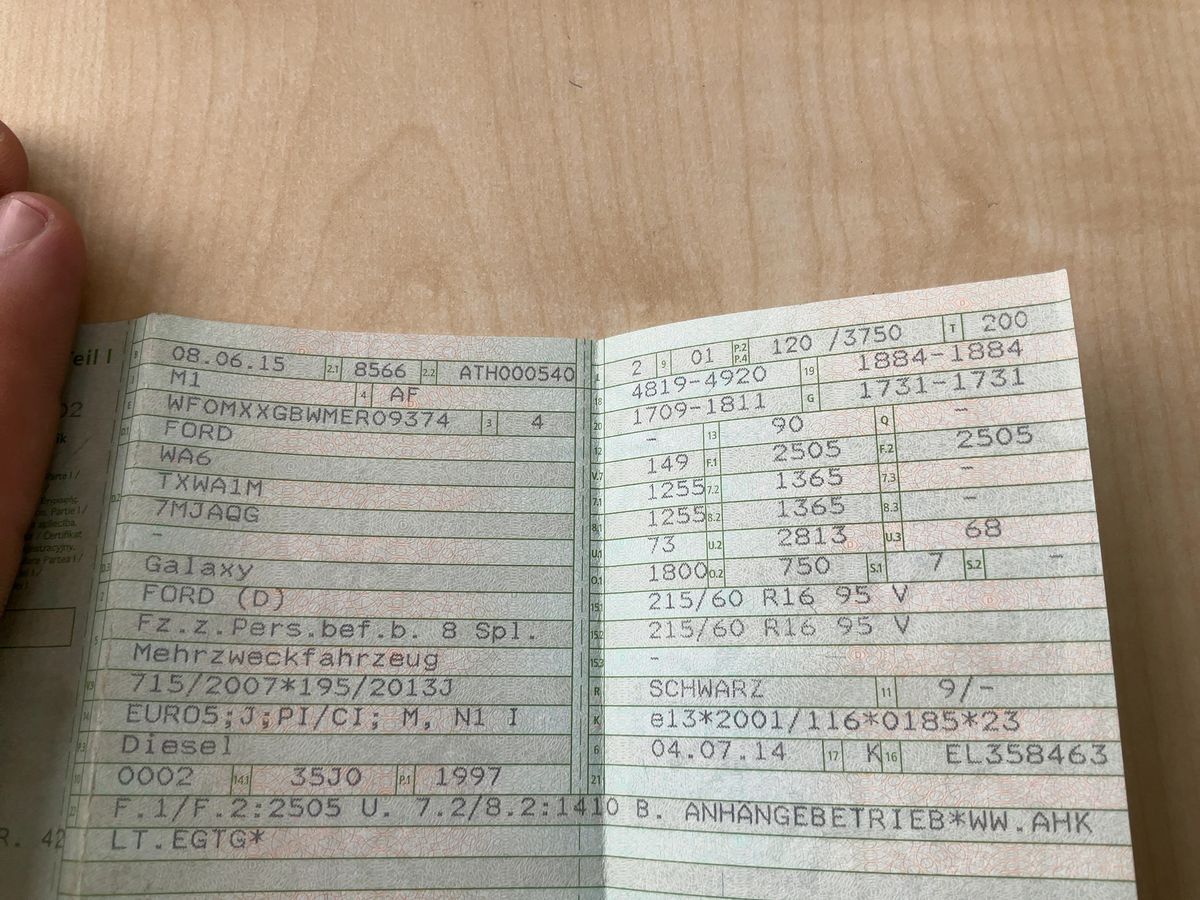 Teil I
B 08.06.15 2.1 8566 2.2 ATH000540
J M1 4 AF
E WF0MXXGBWMER09374 3 4
D.1 FORD
D.2 WA6
TXWA1M
7MJAQG
-
D.3 Galaxy
2 FORD (D)
5 Fz.z.Pers.bef.b. 8 Spl.
Mehrzweckfahrzeug
V.9 715/2007*195/2013J
14 EURO5;J;PI/CI; M, N1 I
P.3 Diesel
10 0002 14.1 35J0 P.1 1997
22 F.1/F.2:2505 U. 7.2/8.2:1410 B. ANHANGEBETRIEB*WW.AHK
LT.EGTG*
L 2 9 01 P.2 P.4 120 /3750 T 200
18 4819-4920 19 1884-1884
20 1709-1811 G 1731-1731
12 - 13 90 Q -
V.7 149 F.1 2505 F.2 2505
7.1 1255 7.2 1365 7.3 -
8.1 1255 8.2 1365 8.3 -
U.1 73 U.2 2813 U.3 68
O.1 1800 O.2 750 S.1 7 S.2 -
15.1 215/60 R16 95 V
15.2 215/60 R16 95 V
15.3 -
R SCHWARZ 11 9/-
K e13*2001/116*0185*23
6 04.07.14 17 K 16 EL358463
21